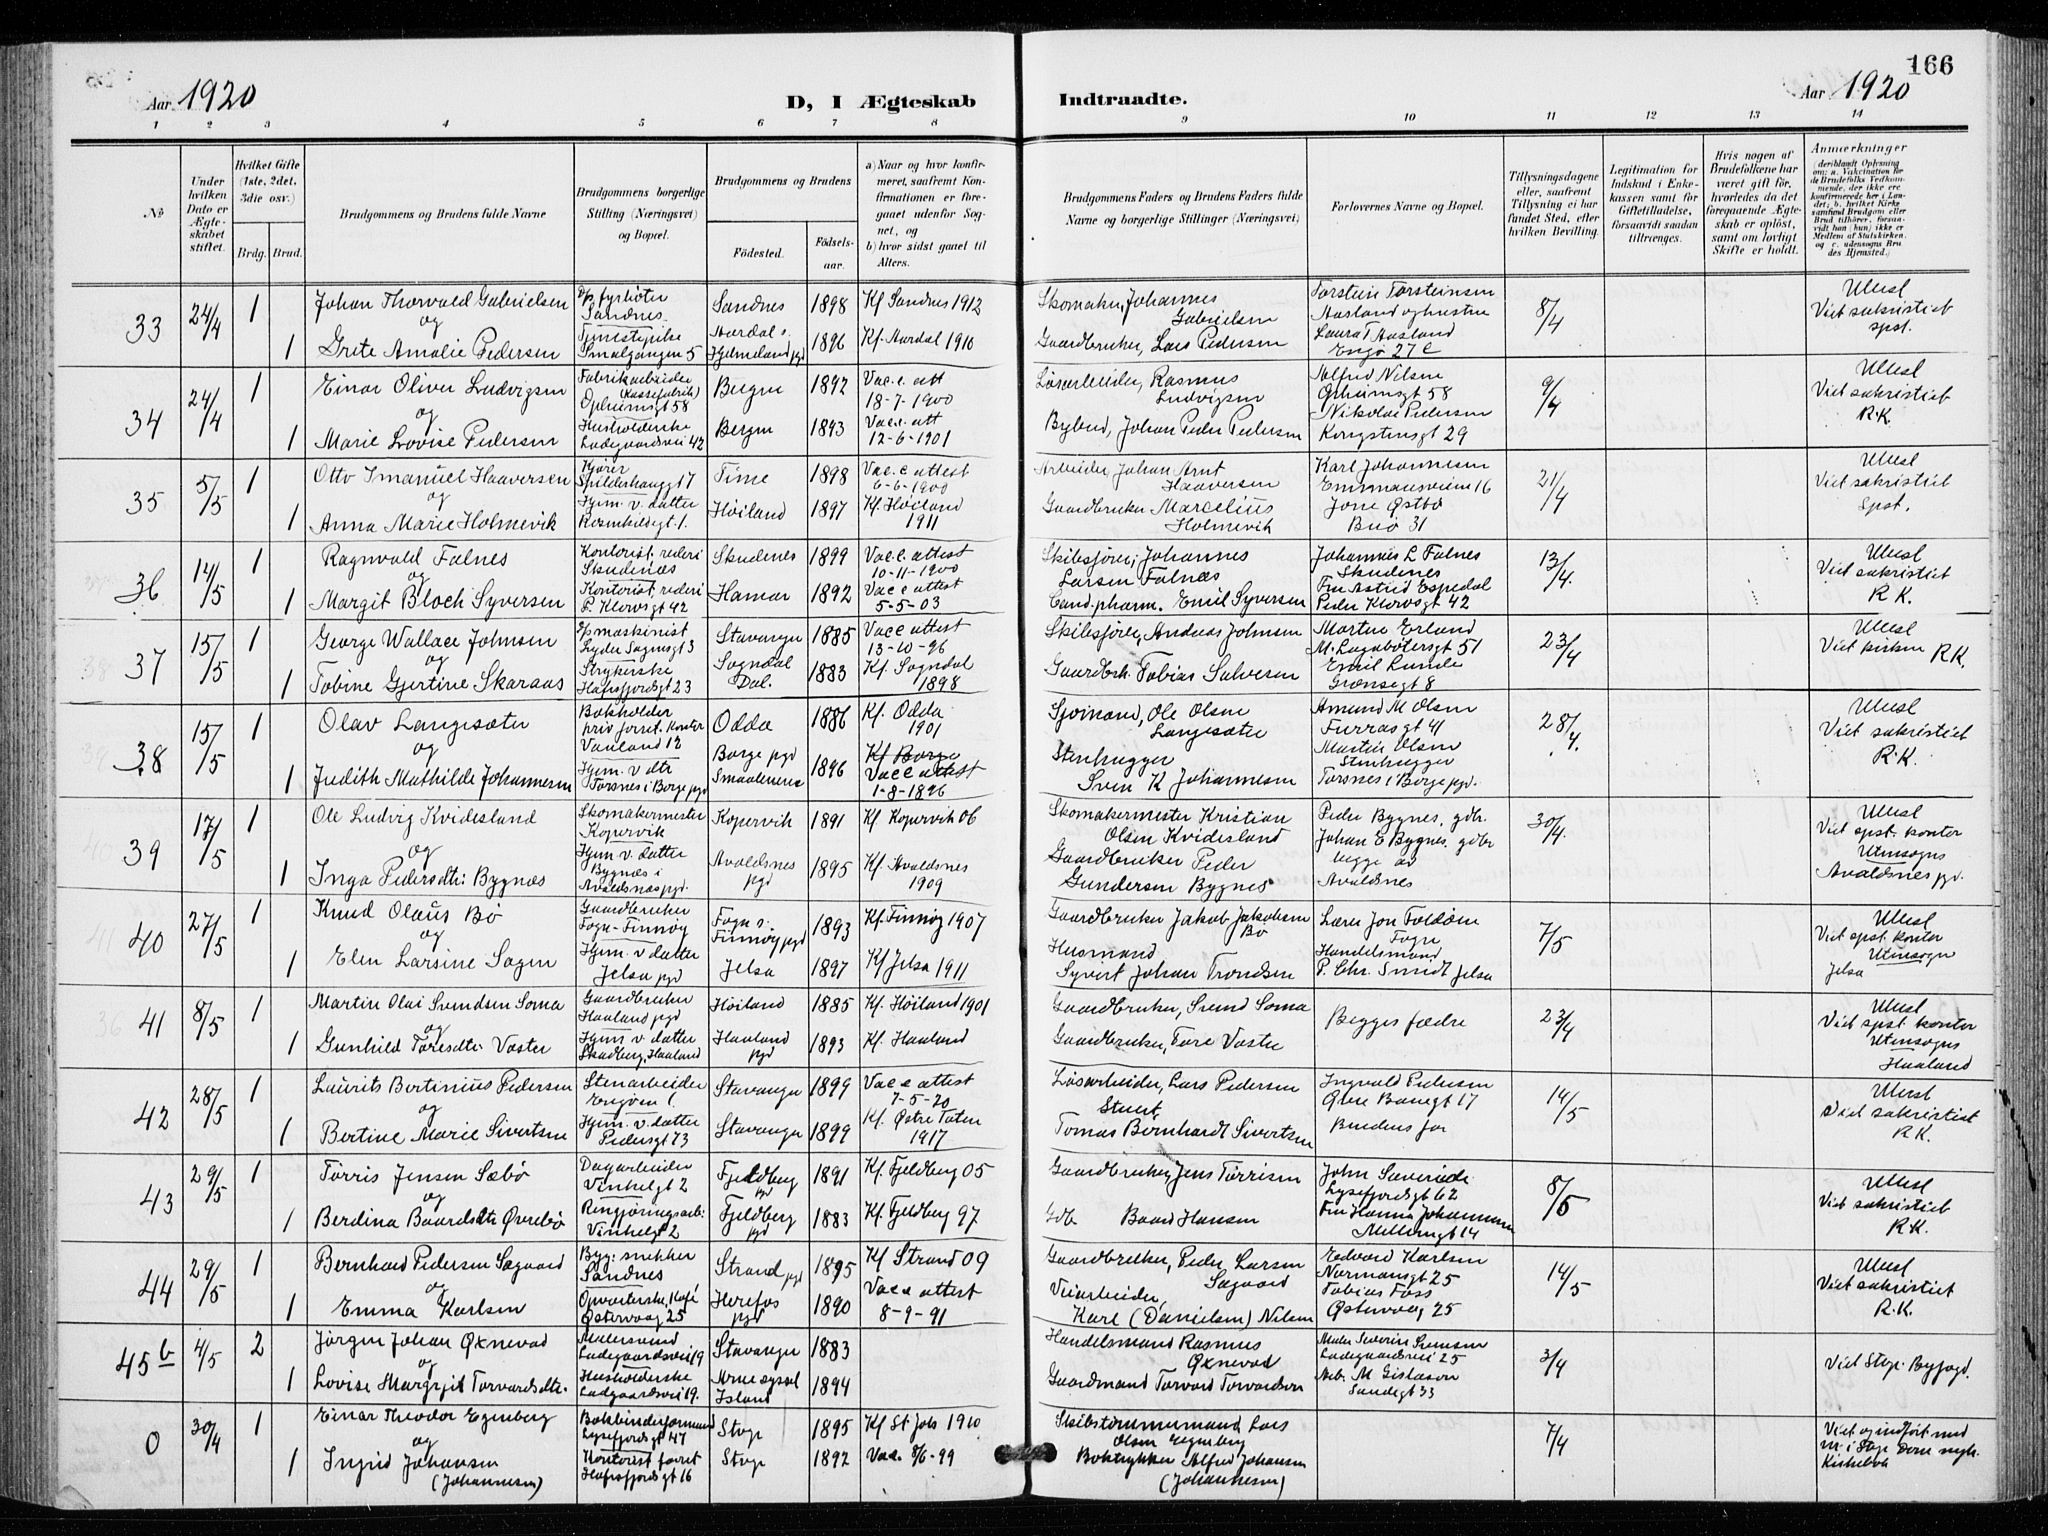 166
Aar 1920
D, I Ægteskab
Indtraadte.
Aar 1920
1 2 3 4 5 6 7 8 9 10 11 12 13 14
No
Under hvilken Dato er Ægteskabet stiftet.
Hvilket Gifte (1ste, 2det, 3die osv.)
Brdg. Brud.
Brudgommens og Brudens fulde Navne
Brudgommens borgerlige Stilling (Næringsvei) og Bopæl.
Brudgommens og Brudens
Fødested.
Fødselsaar.
a) Naar og hvor konfirmeret, saafremt Konfirmationen er foregaaet udenfor Sognet, og
b) hvor sidst gaaet til Alters.
Brudgommens Faders og Brudens Faders fulde Navne og borgerlige Stillinger (Næringsvei)
Forlovernes Navne og Bopæl.
Tillysningsdagene eller, saafremt Tillysning ei har fundet Sted, efter hvilken Bevilling.
Legitimation for Indskud i Enkekassen samt for Giftetilladelse, forsaavidt saadan tiltrænges.
Hvis nogen af Brudefolkene har været gift før, hvorledes da det foregaaende Ægteskab er opløst, samt om lovligt Skifte er holdt.
Anmerkninger
(deriblandt Oplysning om: a. Vaccination for de Brudefolks Vedkommende, der ikke ere konfirmerede her i Landet; b. hvilket Kirkesamfund Brudgom eller Brud tilhører, forsaavidt han (hun) ikke er Medlem af Statskirken, og c. udensogns Brudes Hjemsted.)
33 24/4 1 Johan Thorvald Gabrielsen
Sandnes
Sandnes 1898 Kf Sandnes 1912
Skomaker, Johannes Gabrielsen
Torstein Torsteinsen Aasland og hustru
8/4
Viet sakristiet spst.
og
1 Grete Amalie Pedersen
Smalgangen 5
Aardal s. Hjelmeland pgd 1896 Kf. Aardal 1910
Gaardbruker, Lars Pedersen
Laura T Aasland
Engø 27 C
34 24/4 1 Einar Oliver Ludvigsen
Fabrikarbeider
Opheimsgt 58
Bergen 1892 Vac. e. att 18-7-1900
Løsarbeider, Rasmus Ludvigsen
Alfred Nilsen
Opheimsgt 58
9/4
Viet sakristiet R.K.
og
1 Marie Lovise Pedersen
Husholderske
Ladegaardsvei 42
Bergen 1893 Vac. e. att 12-6-1901
Bybud, Johan Peder Pedersen
Nikolai Pedersen
Kongstensgt 29
35 5/5 1 Otto Imanuel Haaversen
Spilderhaugg 17
Time 1898 Vac. e attest 6-6-1900
Arbeider Johan Arnt Haaversen
Karl Johannesen
Emmausveien 16
21/4
Viet sakristiet Spst.
og
1 Anna Marie Holmevik
Hjem. v. datter
Rosenkildegt 1.
Høiland 1897 Kf. Høiland 1911
Gaardbruker Marcelius Holmevik
Jone Østbø
Buø 31
36 14/5 1 Ragnvald Falnes
Kontorist. rederi
Skudenæs
Skudenes 1899 Vac. e. attest 10-11-1900
Skibsfører, Johannes Larsen Falnæs
Johannes L Falnes
Skudenes
13/4.
Viet sakristiet R K.
og
1 Margit Bloch Syversen
Kontorist, rederi
P. Klowsgt 42
Hamar 1892 Vac e attest 5-5-03
Cand. pharm. Emil Syversen
Fru Astrid Espedal
Peder Klowsgt 42
37 15/5 1 George Wallace Johnsen
maskinist
Lyder Sagensgt 3
Stavanger 1885 Vac e attest 13-10-96
Skibsfører, Andreas Johnsen
Martin Erland
M. Lagabøtersgt 51
23/4
Viet kirken R K.
og
1 Tobine Gjertine Skaraas
Strykerske
Hafrsfjordsgt 23
Sogndal Dal. 1883 Kf. Sogndal 1898
Gaardbrk. Tobias Salvesen
Emil Lunde
Grænsegt 8
38 15/5 1 Olav Langesæter
Bokholder
priv forret. Kontor
Vauland 12
Odda 1886 Kf. Odda 1901
Sjømand, Ole Olsen Langesæter
Amund M Olsen
Furrasgt 41
28/4.
Viet sakristiet R.K.
og
1 Judith Mathilde Johannesen
Hjem. v dtr
Torsnes i Borge pgd
Borge pgd Smaalenene 1896 Kf Borge
Vac e attest 1-8-1896
Stenhugger
Sven K Johannesen
Martin Olsen
Stenhugger
Torsnes i Borge pgd.
39 17/5 1 Ole Ludvig Kvidesland
Skomakermester
Kopervik
Kopervik 1891 Kf. Kopervik 06
Skomakermester Kristian Olsen Kvidesland
Peder Bygnes, gdbr.
Johan E Bygnes. gdbr
30/4.
Viet spst. kontor
Utensogns
Avaldsnes pgd.
og
1 Inga Pedersdtr: Bygnæs
Hjem v. datter
Bygnæs i
Avaldsnæs pgd.
Avaldsnes pgd 1895 Kf. Avaldsnes 1909
Gaardbruker Peder
Gundersen Bygnes
begge av
Avaldsnes
40 27/5 1 Knud Olaus Bø
Gaardbruker
Fogn-Finnøy
Fogn s: Finnøy pgd 1893 Kf. Finnøy 1907
Gaardbruker Jakob Jakobsen Bø
Lærer Jon Foldøen
Fogn
7/5
Viet spst. kontor
Utensogn
Jelsa
og
1 Elen Larsine Sagen
Hjem. v datter
Jelsa pgd
Jelsa 1897 Kf Jelsa 1911
Husmand
Syvert Johan Trondsen
Handelsmand
P. Chr. Smidt Jelsa
41 8/5 1 Martin Olai Svendsen Soma
Gaardbruker
Haaland pgd
Høiland 1885 Kf. Høiland 1901
Gaardbruker, Svend Soma
Begges fædre
23/4
Viet spst. kontor
Utensogns
Haaland
og
1 Gunhild Toresdtr. Vaster
Hjem v. datter
Skadberg, Haaland
Haaland pgd 1893 Kf. Haaland
Gaardbruker, Tore Vaster
42 28/5 1 Laurits Bertinius Pedersen
Stenarbeider
Engøien 1.
Stavanger 1899 Vac e attest 7-5-20
Løsarbeider, Lars Pedersen
Ingvald Pedersen
Øvre Banegt 17
14/5
Viet sakristiet R K.
og
1 Bertine Marie Sivertsen
Hjem. v. datter
Pedersgt 73
Stavanger 1899 Kf. Østre Toten 1917
Stuert,
Tomas Bernhardt Sivertsen
Brudens far
43 29/5 1 Torris Jensen Sæbø
Dagarbeider
Vinkelgt 2
Fjeldberg pgd 1891 Kf. Fjeldberg 05
Gaardbruker, Jens Torrisen
John Sæverude
Lysefjordsgt 62
8/5
Viet sakristiet R K.
og
1 Berdina Baardsdtr Øvrebø
Rengjøringsarb:
Vinkelgt 2
Fjeldberg pgd 1883 Kf. Fjeldberg 97
Gdb Baard Hansen
Fru Hanna Johannesen
Møllergt 14
44 29/5 1 Bernhard Pedersen Sægaard
Byg: snekker
Sandnes
Strand pgd 1895 Kf Strand 09
Gaardbruker, Peder Larsen Sægaard
Edvard Karlsen
Normansgt 25
14/5
Viet sakristiet R.K.
og
1 Emma Karlsen
Opvarterske, Kafé
Østervaag 25
Herefos pgd 1890 Vac e attest 8-9-91
Veiarbeider,
Karl (Danielsen) Nilsen
Tobias Foss
Østervaag 25
45 b 4/5 2 Jørgen Johan Øxnevad
Malersvend
Ladegaardsvei 19
Stavanger 1883
Handelsmand Rasmus Øxnevad
Maler Severin Svensen
Ladegaardsvei 25
3/4
Viet Stvgr. Byfogd.
og
1 Lovise Margrjet Torvardsdtr.
Husholderske
Ladegaardsvei 19.
Arnessyssel Island 1894
Gaardmand Torvard Torvardson
M Gislason
Sandegt 33
0 30/4 1 Einar Theodor Egenberg
Bokbinderformand
Lysefjordsgt 47
Stvgr 1895 Kf St Johs 1910
Skibstømmermand, Lars
Olsen Egenberg
7/4
Viet og indført med
nr. i Stvgr Domk mgh.
Kirkebok
og
1 Ingrid Johansen
(Johannesen)
Kontorist forret
Hafrsfjordsgt 16
Stvgr 1892 Vac. 8/6-99
Boktrykker Alfred Johansen
(Johannesen)